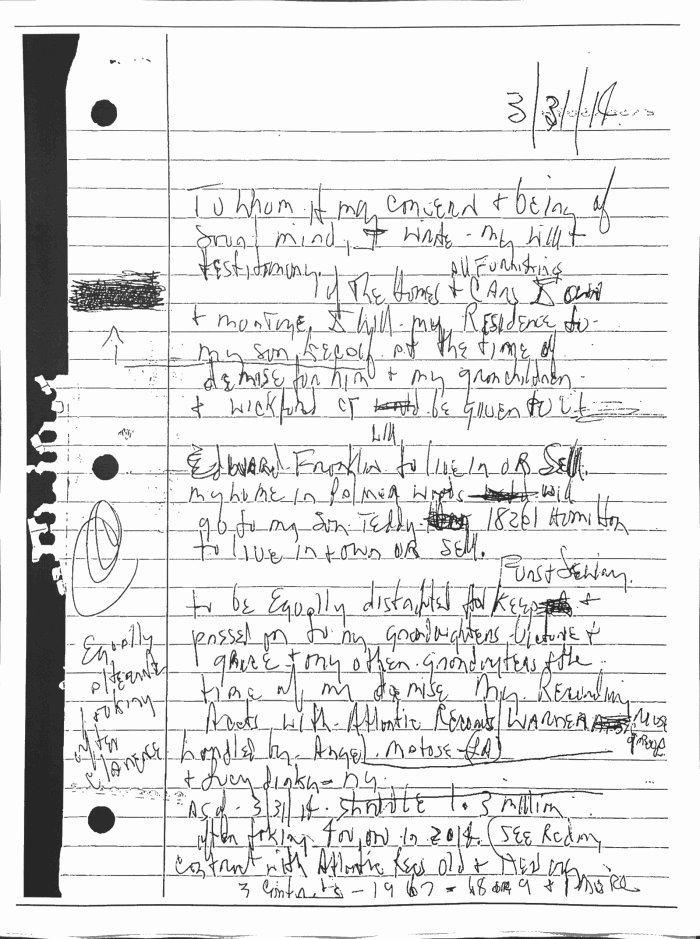 3/31/14
To Whom It may concern & being of
Sound mind, I write my will &
testimony.
All Furnishing
of The Homes & CARS I own
& mortage, I will my Residence to
my son Kecalf at the time of
demise for him & my granchildren
& Wickford CT be given to
Edward Franklin to live in OR Sell.
my home in Palmer Woods
go to my Son Teddy 18261 Hamilton
to live in & own OR Sell.
to be Equally distributed Keep &
passed on to my grandaughters Victorie &
grace & my other grandaughters
time of my demise My Recording
Assets with Atlantic Records WARNER Music
group
handled by (LA)
& - NY
As of 3/31/14 1.3 million
after taking in 2014. (SEE
contract with Atlantic Recs Old & New
3 Contracts - 1967 - 68 & more
Equally
alternate
looking
after
Clarence